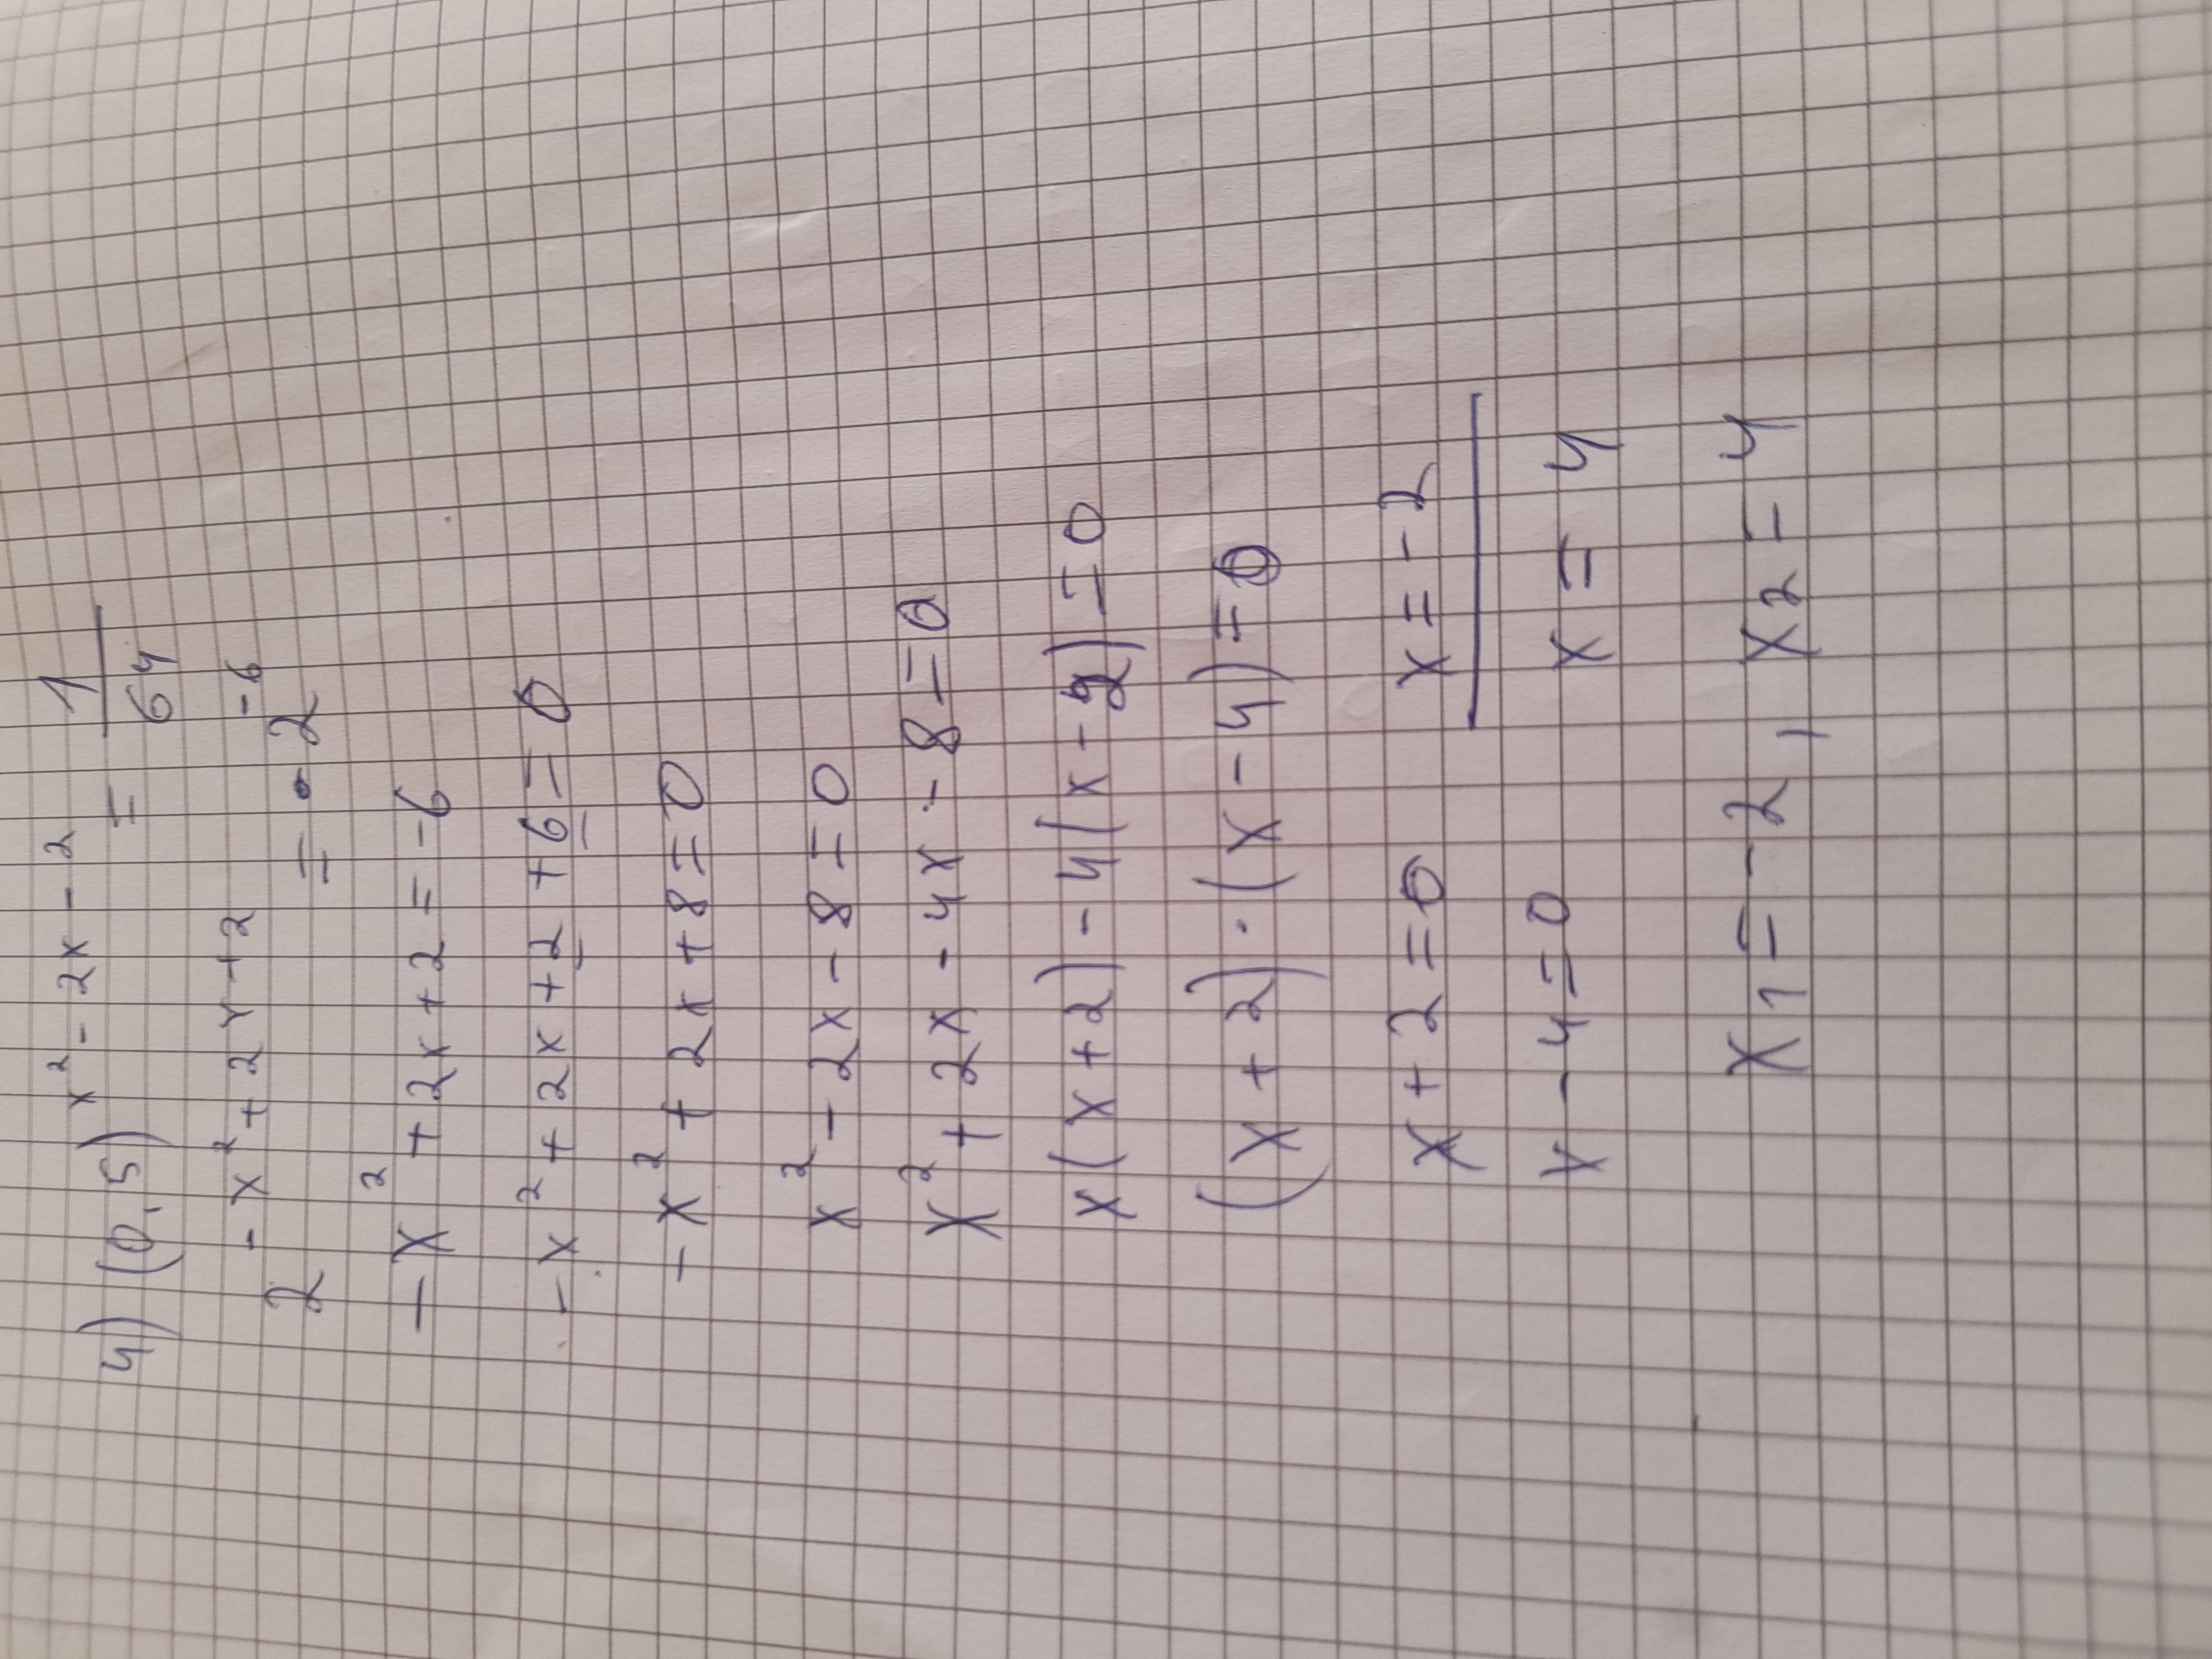 4) (0,5)^x²-2x-2 = 1/64
2^-x²+2x+2 = 2^-6
-x²+2x+2=-6
-x²+2x+2+6=0
-x²+2x+8=0
x²-2x-8=0
x²+2x-4x-8=0
x(x+2)-4(x-2)=0
(x+2)·(x-4)=0
x+2=0 x=-2
x-4=0 x=4
x1=-2, x2=4